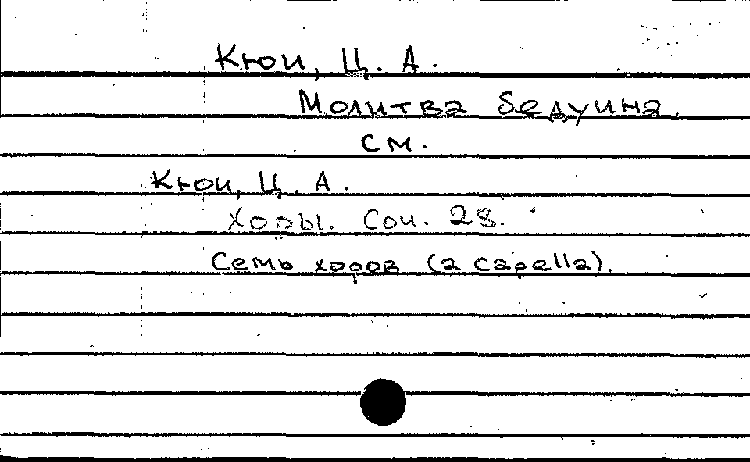 Кюи, Ц. А.
Молитва бедуина.
см.
Кюи, Ц. А.
Хоры. Соч. 28.
Семь хоров (a capella).